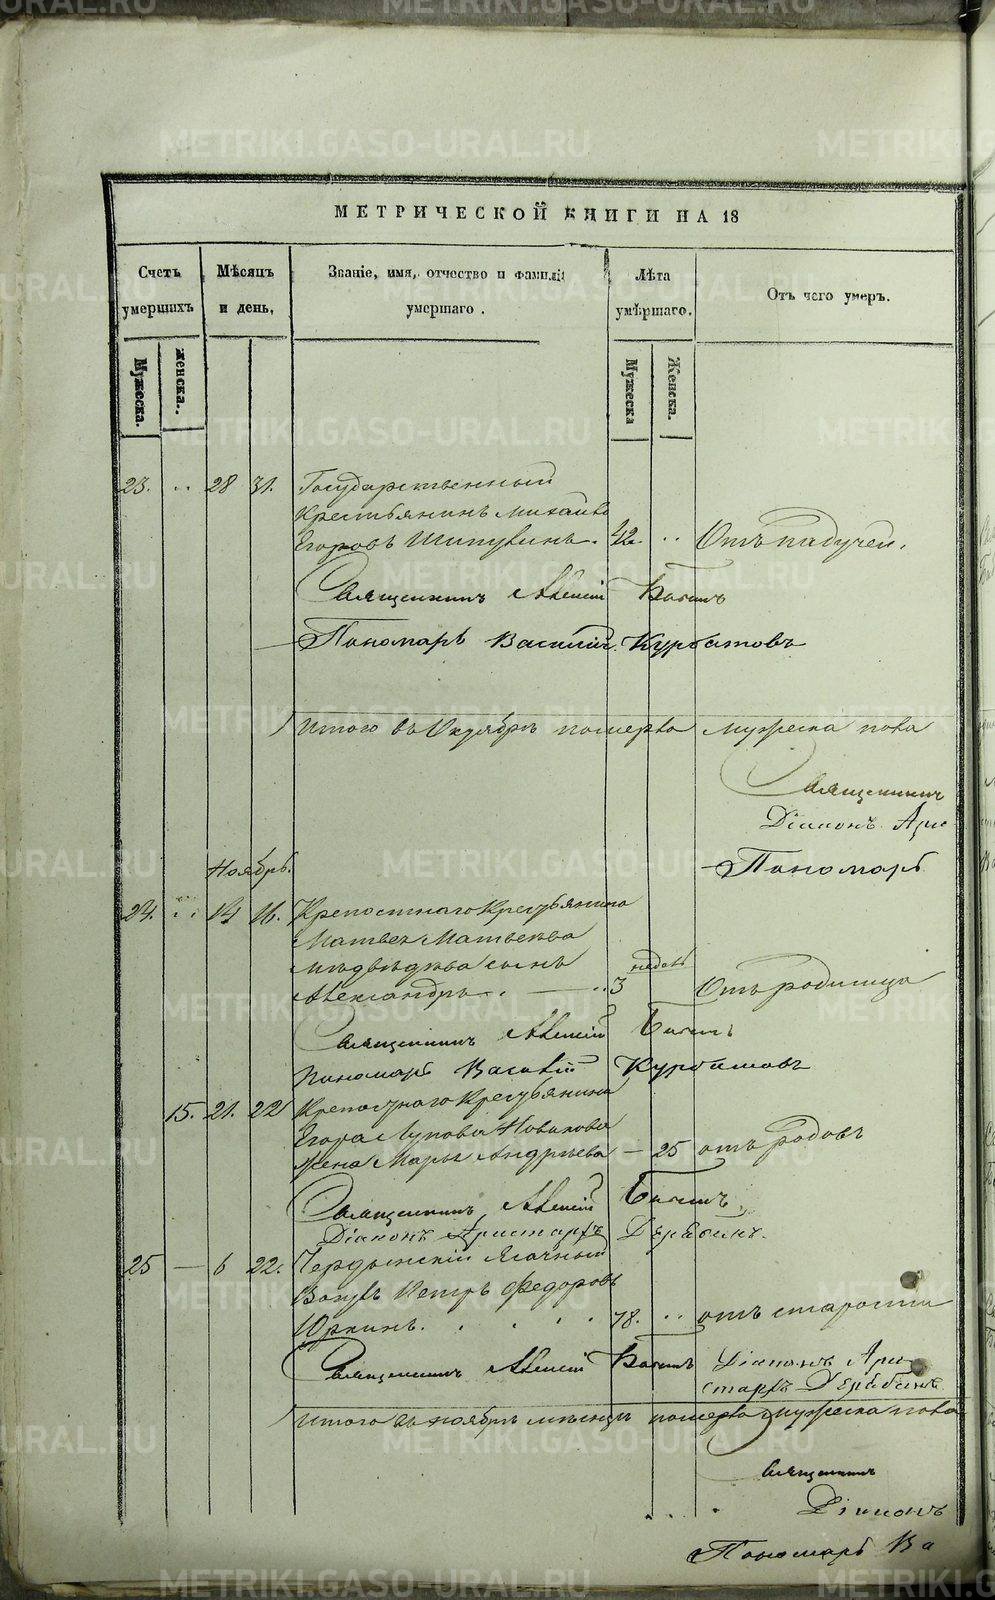 МЕТРИЧЕСКОЙ КНИГИ НА 18
Счетъ умершихъ
Мѣсяцъ и день,
Званіе, имя, отчество и фамилія умершаго.
Лѣта умѣршаго.
Отъ чего умеръ.
Мужеска.
женска.
Мужеска
Женска.
23. 28 31. Государственный
Крестьянинъ Михаилъ
Егоровъ 42. Отъ падучей.
Священникъ Алексій
Пономарь Василій Курбатовъ
Итого въ Октябрѣ померло мужеска пола
Священникъ
Діаконъ Ари
Пономарь
Ноябрь.
24. 14 16. Крепостнаго Крестьянина
Матвея Матвеева
Медведева сынъ недель
Александръ 3 Отъ родимца
Священникъ Алексій
Пономарь Василій Курбатовъ
15. 21. 22 Крепостнаго Крестьянина
Егора Лупова Новикова
жена Марья Андреева 25 отъ родовъ
Священникъ Алексій
Діаконъ Аристархъ Дерябинъ.
25 6 22. Чердынскій Ясачный
Вогулъ Петръ Федоровъ
Юркинъ. 78. отъ старости
Священникъ Алексій Діаконъ Ари
стархъ Дерябинъ
Итого въ ноябрѣ месяцѣ померло мужеска пола
Священникъ
Діаконъ
Пономарь Ва
METRIKI.GASO-URAL.RU